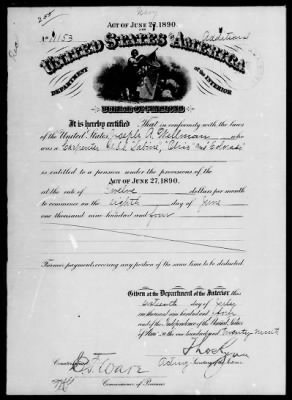 Navy
200
ACT OF JUNE 27, 1890.
Additional
UNITED STATES OF AMERICA
DEPARTMENT OF THE INTERIOR
BUREAU OF PENSIONS
It is hereby certified That in conformity with the laws
of the United States, Joseph A. who
was a Carpenter U.S.S. "Sabine," "Ohio" and Colorado
is entitled to a pension under the provisions of the
ACT OF JUNE 27, 1890.
at the rate of Twelve dollars per month
to commence on the eighth day of June
one thousand nine hundred and four
Former payments covering any portion of the same time to be deducted.
Given at the Department of the Interior this
sixteenth day of July
one thousand nine hundred and four
and of the Independence of the United States
of America the one hundred and twenty-ninth
Acting Secretary of the Interior
Countersigned
Commissioner of Pensions